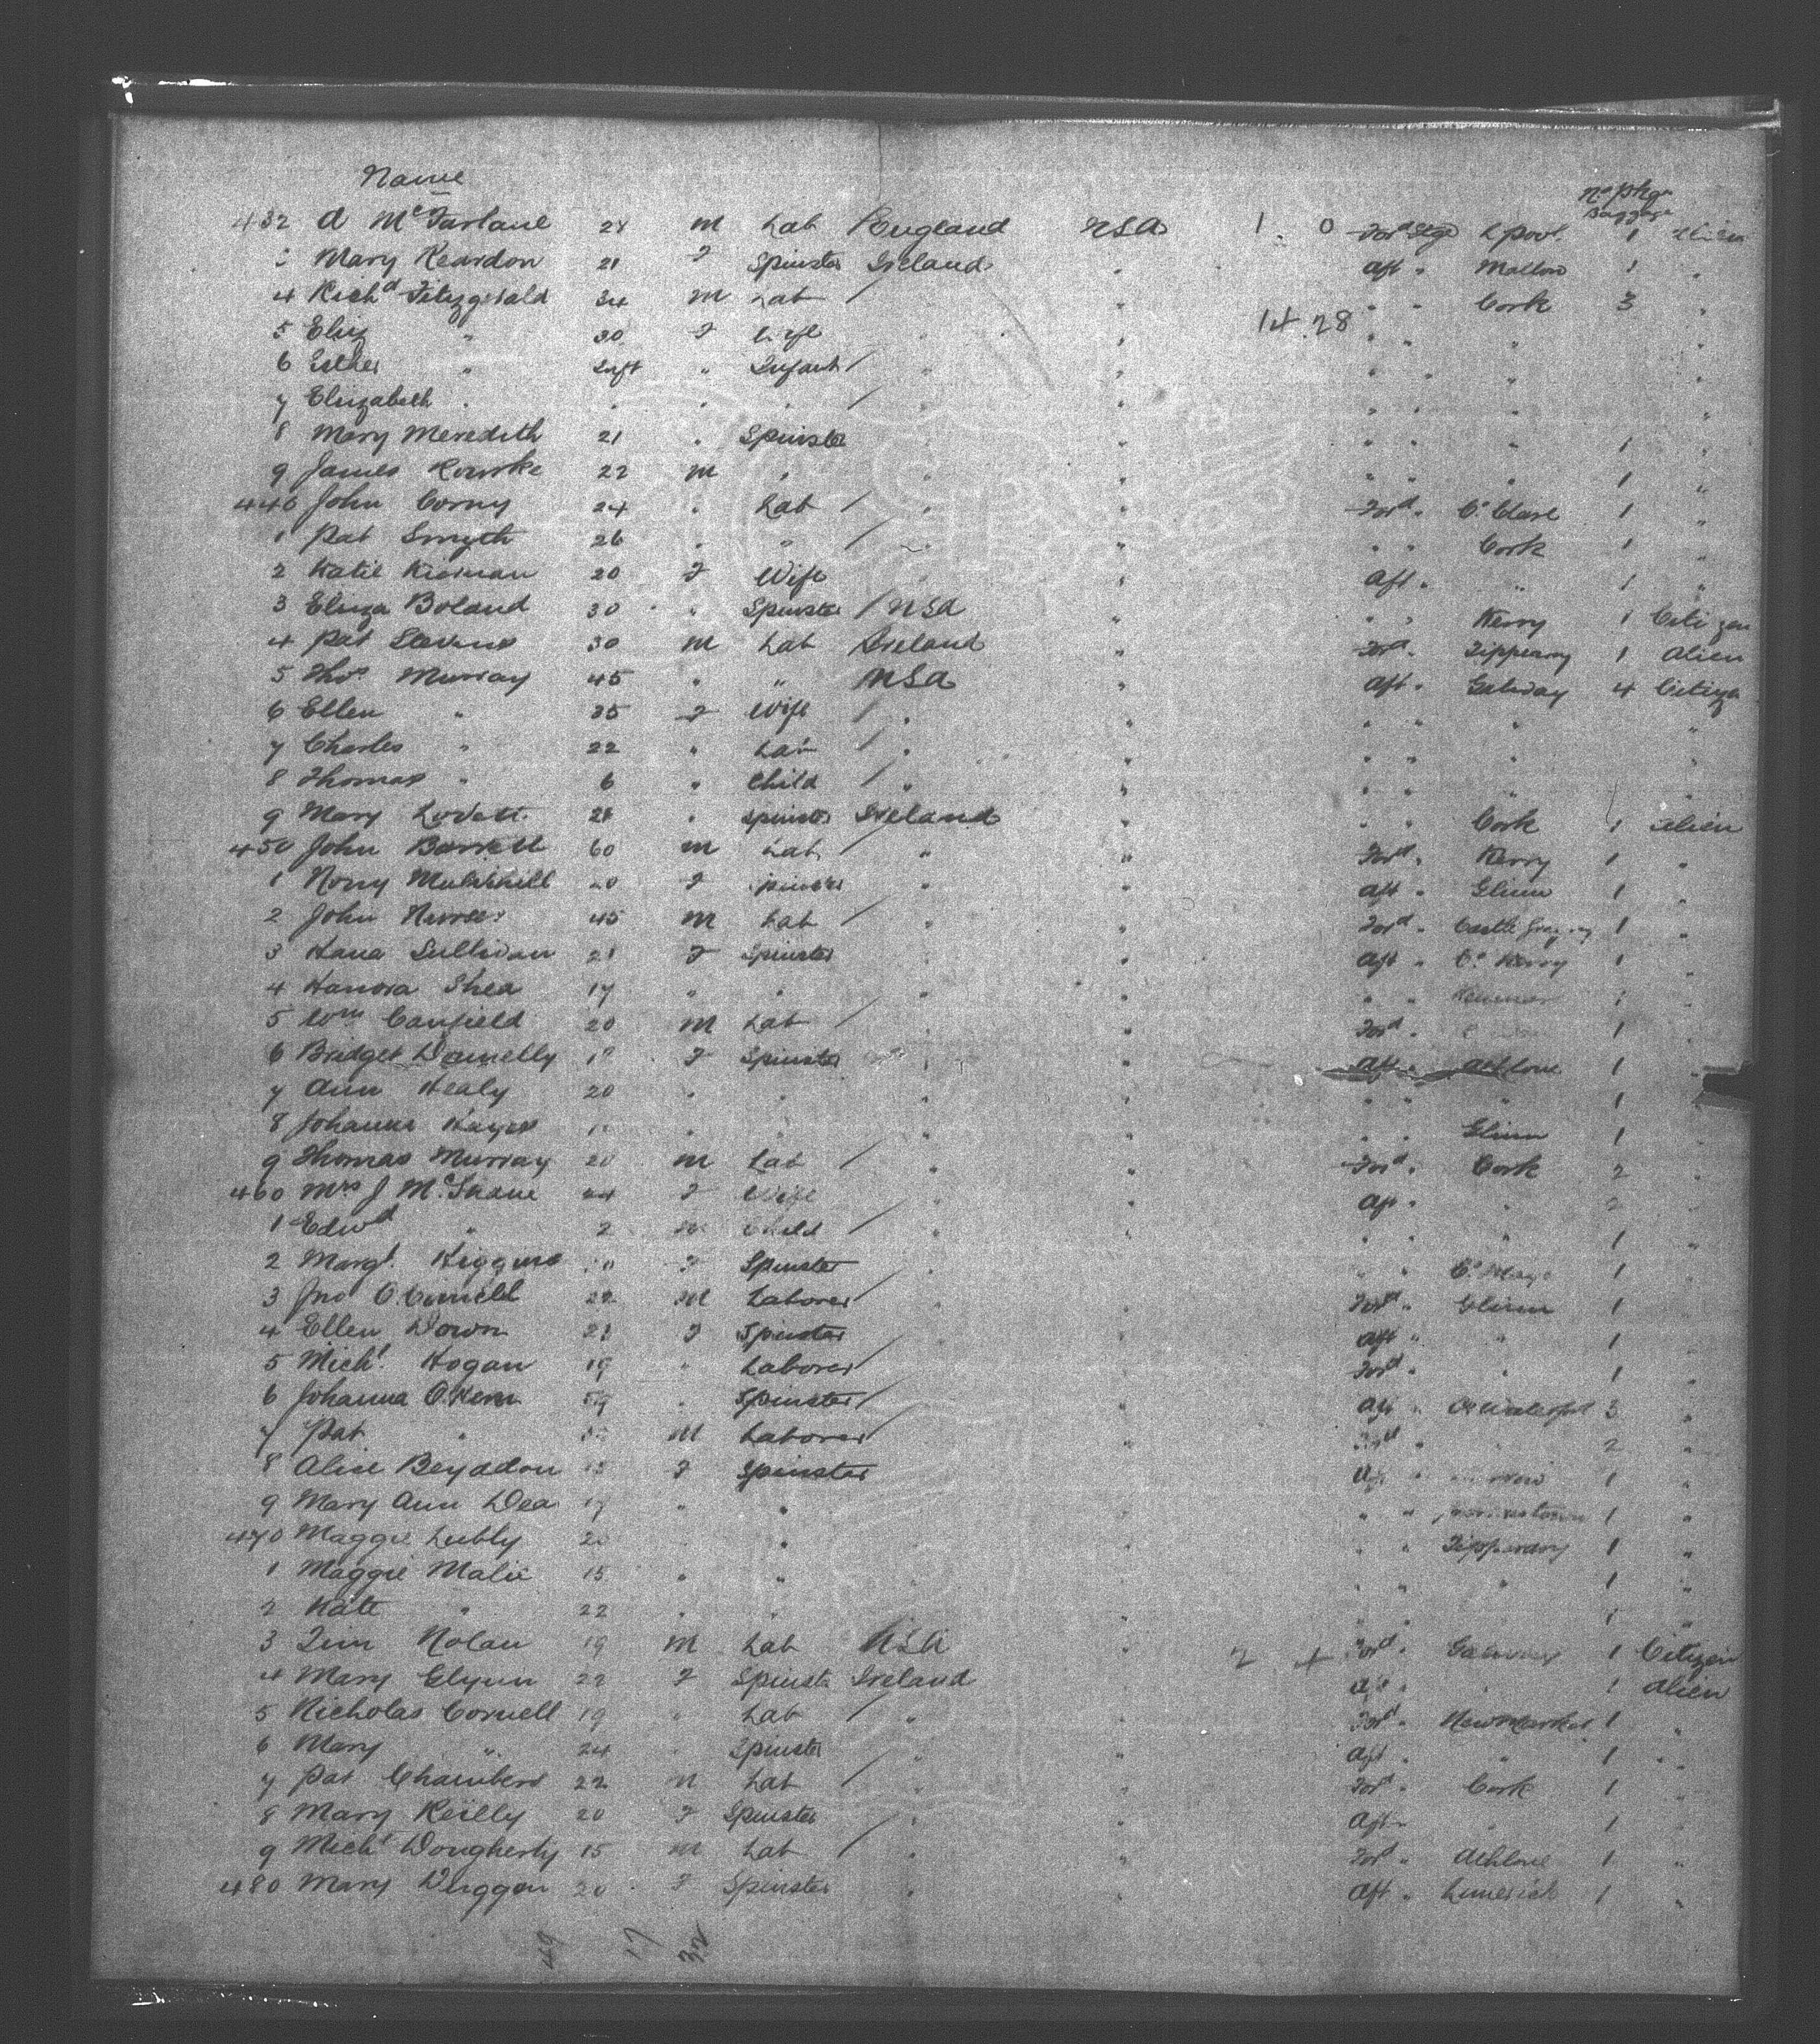 Name
No pkgs Baggage
432 A McFarlane 28 m Lab England USA 1 0 Ford Stge L'pool 1 Alien
3 Mary Reardon 21 F Spinster Ireland " Aft " Mallow 1 "
4 Richd Fitzgerald 34 m Lab / " " " Cork 3 "
14 28
5 Eliz " 30 F Wife " " " " " "
6 Esther " Inft " Infant / " " " " " "
7 Elizabeth " " " " / " " " " " "
8 Mary Meredith 21 " Spinster " " " " 1 "
9 James Rourke 22 m " " " " " " 1 "
440 John Corny 24 " Lab / " " Ford " Co Clare 1 "
1 Pat Smyth 26 " " / " " " " Cork 1 "
2 Katie Kiernan 20 F Wife " " Aft " " 1 "
3 Eliza Boland 30 " Spinster / USA " " " Kerry 1 Citizen
4 Pat 30 m Lab Ireland " Ford " Tipperary 1 Alien
5 Thos Murray 45 " " USA " Aft " Galway 4 Citizn
6 Ellen " 35 F Wife / " " " " " "
7 Charles " 22 " Lab / " " " " " "
8 Thomas " 6 " Child / " " " " " "
9 Mary Lovett 28 " Spinster Ireland " " " Cork 1 Alien
450 John Barrett 60 m Lab / " " Ford " Kerry 1 "
1 Nony Mulvihill 20 F Spinster " " Aft " Glinn 1 "
2 John 45 m Lab / " " Ford " Castle 1 "
3 Hana Sullivan 21 F Spinster " " Aft " Co Kerry 1 "
4 Hanora Shea 17 " " / " " " " 1 "
5 Wm Canfield 20 m Lab / " " Ford " 1 "
6 Bridget Donnelly F Spinster " " Aft " Athlone 1 "
7 Ann Healy 20 " " " " " " " 1 "
8 Johanna Hayes " " " " " " Glinn 1 "
9 Thomas Murray 20 m Lab / " " Ford " Cork 2 "
460 Mrs J McShane 24 F Wife " " Aft " " 2 "
1 Edwd " 2 m Child / " " " " " 1 "
2 Margt Higgins F Spinster " " " " Co Mayo 1 "
3 Jno O.Connell 22 m Laborer / " " Ford " Glinn 1 "
4 Ellen Down 21 F Spinster / " " Aft " " 1 "
5 Michl Hogan 19 " Laborer / " Ford " " 1 "
6 Johanna O.Kern 59 " Spinster / " Aft " Co Waterford 3 "
7 Pat " m Laborer / " Ford " " 2 "
8 Alice Beyaddon F Spinster " Aft " 1 "
9 Mary Ann Dea 17 " " " " " 1 "
470 Maggie Lubly 20 " " " Tipperary 1 "
1 Maggie Malie 15 " " " " " 1 "
2 Kate " 22 " " " " " 1 "
3 Tim Nolan 19 m Lab USA " 2 4 Ford " Galway 1 Citizen
4 Mary Glynn 22 F Spinster Ireland " Aft " " 1 Alien
5 Nicholas Cornell 19 " Lab / " " Ford " Newmarket 1 "
6 Mary " 24 " Spinster / " " Aft " " 1 "
7 Pat Chambers 22 m Lab / " " Ford " Cork 1 "
8 Mary Reilly 20 F Spinster / " " Aft " " 1 "
9 Michl Dougherty 15 m Lab / " " Ford " Athlone 1 "
480 Mary Duggan 20 F Spinster " " Aft " Limerick 1 "
49 17 32